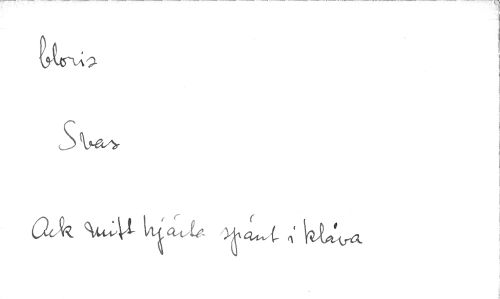 Cloris
Svar
Ack mitt hjärta spänt i klåva